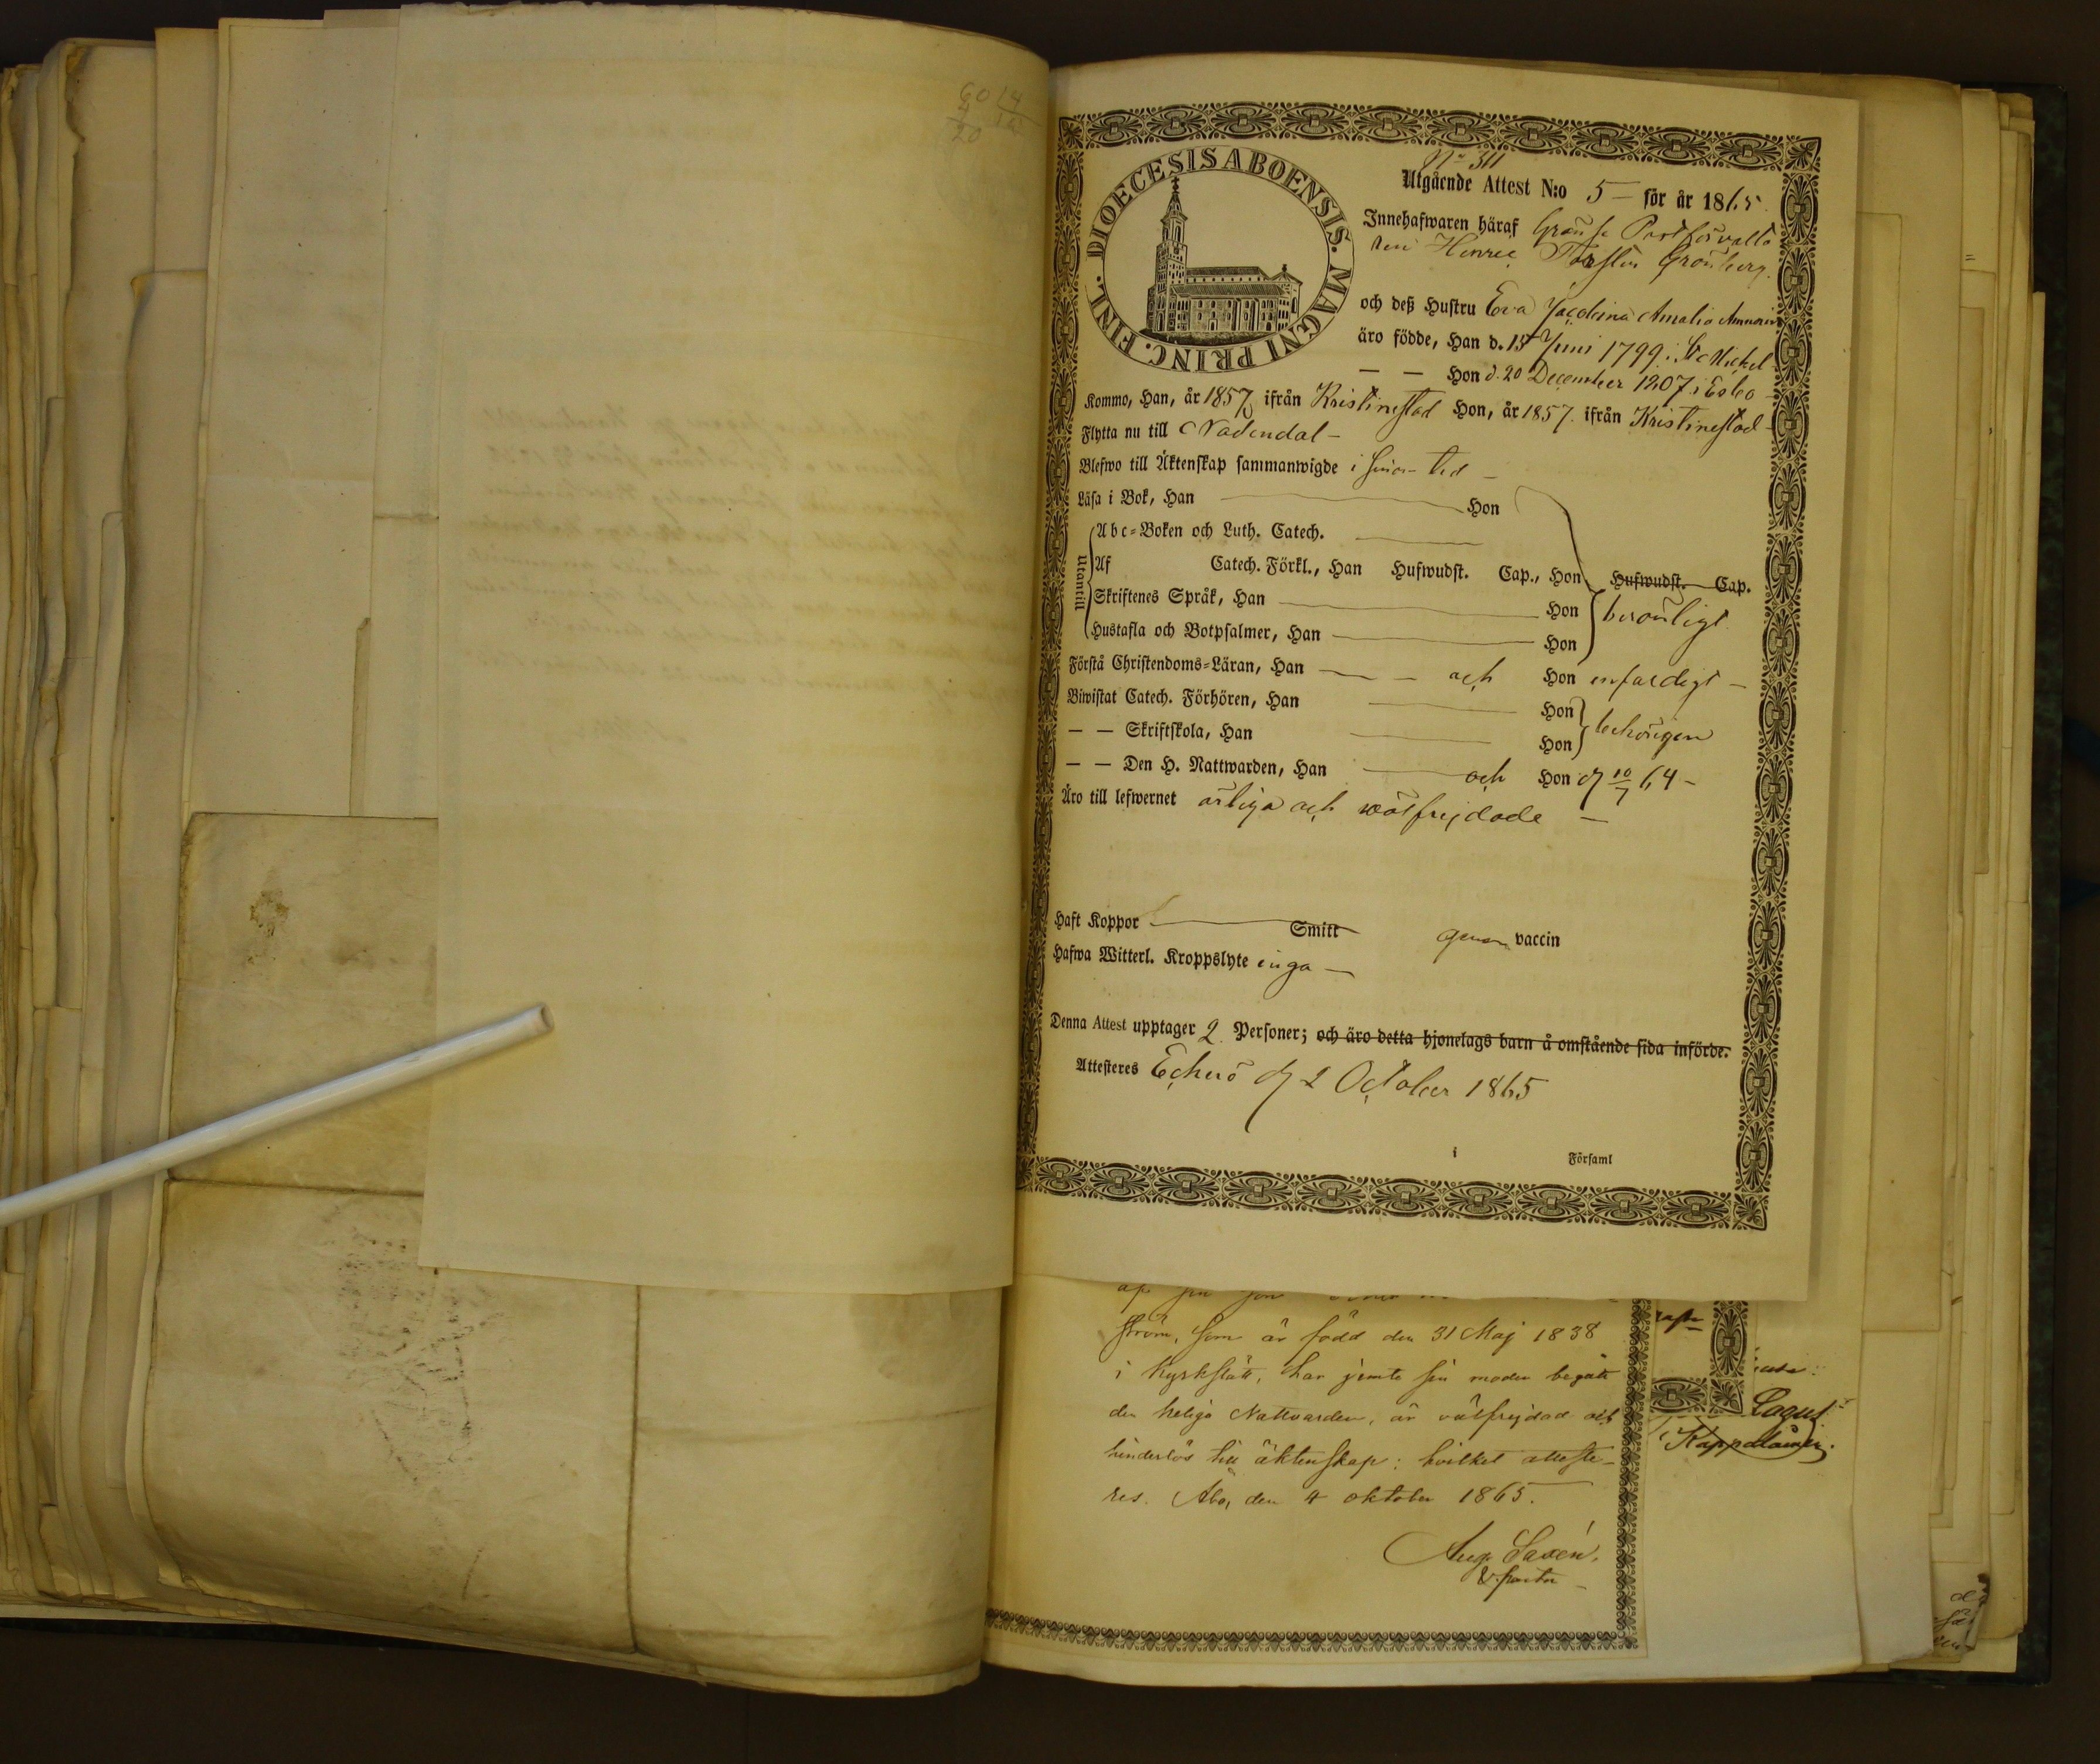 60 14
4
20
DIOECESIS ABOENSIS. MAGNI PRINC. FINL.
No 311
Utgående Attest N:o 5 — för år 1865.
Innehafwaren häraf Gränse Postförvalta
ren Henric Torsten Grönberg.
och deß Hustru Eva Jacobina Amalia
äro födde, Han d. 15 Juni 1799 i St Michel
— — Hon d. 20 December 1807 i Esbo —
Kommo, Han, år 1857 ifrån Kristinestad Hon, år 1857. ifrån Kristinestad —
Flytta nu till Nadendal —
Blefwo till Äktenskap sammanwigde i sinom tid —
Läsa i Bok, Han — Hon
Utantill
Abc-Boken och Luth. Catech. —
Af Catech. Förkl., Han Hufwudst. Cap., Hon Hufwudst. Cap.
Skriftenes Språk, Han — Hon
berömligt
Hustafla och Botpsalmer, Han — Hon
Förstå Christendoms-Läran, Han — — och Hon enfaldigt —
Biwistat Catech. Förhören, Han — Hon
behörigen
— — Skriftskola, Han — Hon
— — Den H. Nattwarden, Han — och Hon d 10/7 64 —
Äro till lefwernet ärliga och wälfrejdade —
Haft Koppor — Smitt genom vaccin
Hafwa Witterl. Kroppslyte inga —
Denna Attest upptager 2 Personer; och äro detta hjonelags barn å omstående sida införde.
Attesteres Eckerö d 2 October 1865
i Församl
af sin son
ström, som är född den 31 Maj 1838
i Kyrkslätt, har jemte sin moder begått
den heliga Nattvarden, är välfrejdad och
hinderlös till äktenskap: hvilket atteste-
res. Åbo, den 4 oktober 1865.
Aug. Saxén.
V. pastor
Lagus
Kappalainen.